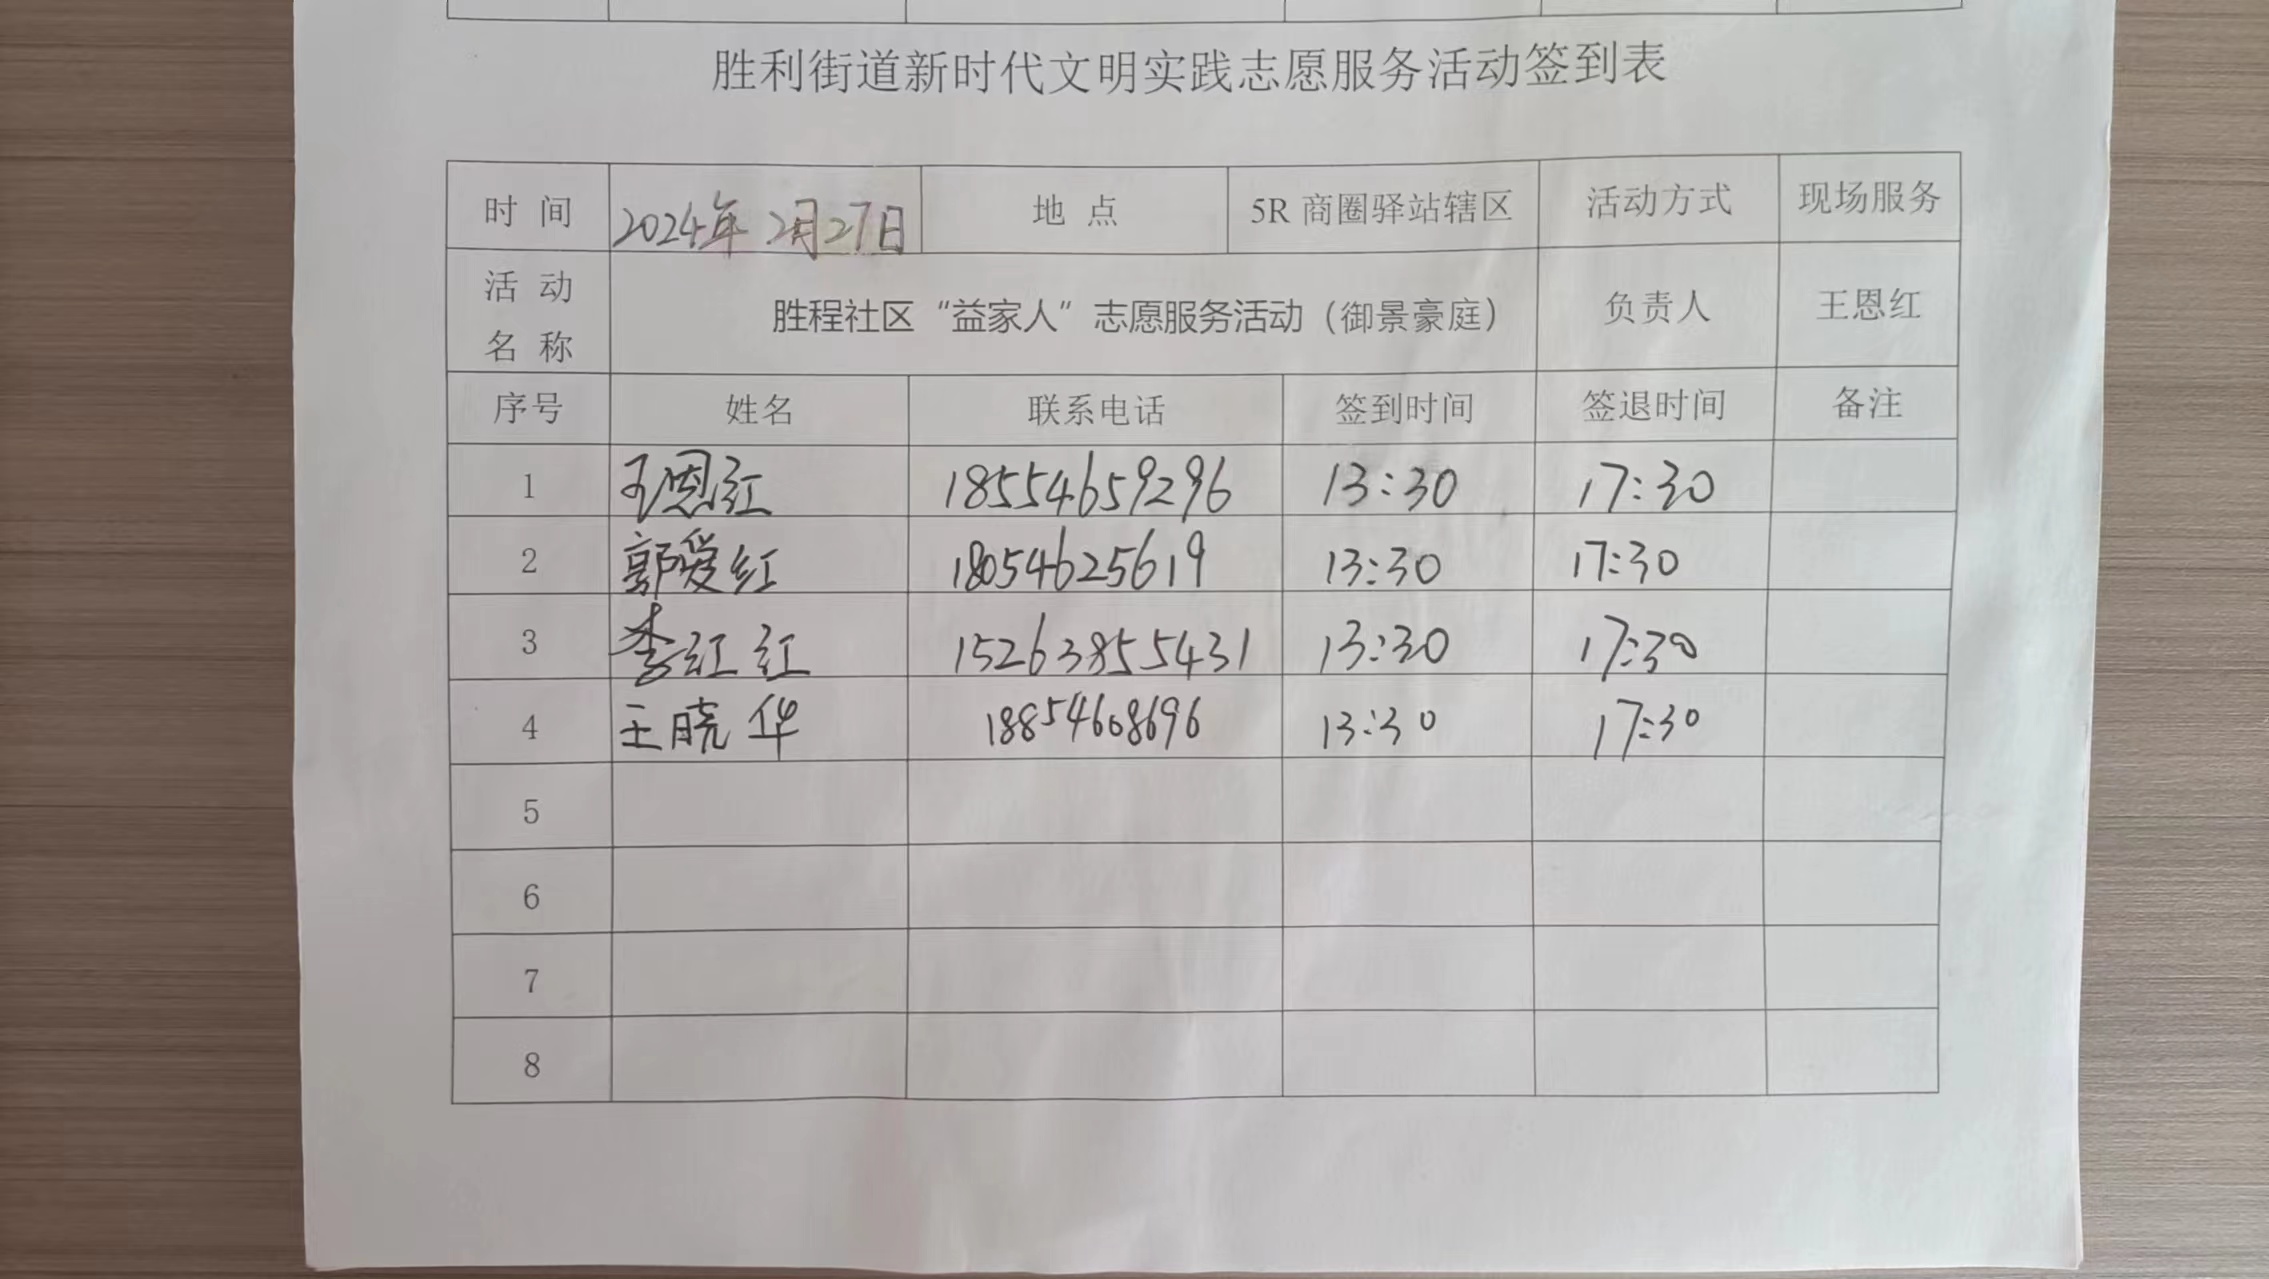 胜利街道新时代文明实践志愿服务活动签到表
时 间 2024年2月27日 地 点 5R 商圈驿站辖区 活动方式 现场服务
活 动 名 称 胜程社区“益家人”志愿服务活动（御景豪庭） 负责人 王恩红
序号 姓名 联系电话 签到时间 签退时间 备注
1 王恩红 18554659296 13:30 17:30
2 郭爱红 18054625619 13:30 17:30
3 李红红 15263855431 13:30 17:30
4 王晓华 18854608696 13:30 17:30
5
6
7
8